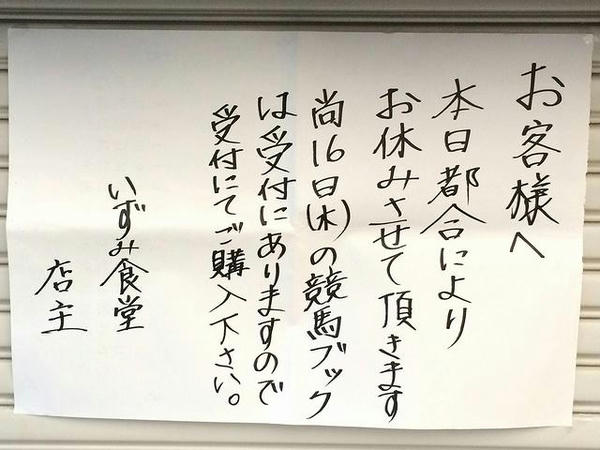 お客様へ
本日都合により
お休みさせて頂きます
尚16日(木)の競馬ブック
は受付にありますので
受付にてご購入下さい。
いずみ食堂
店主